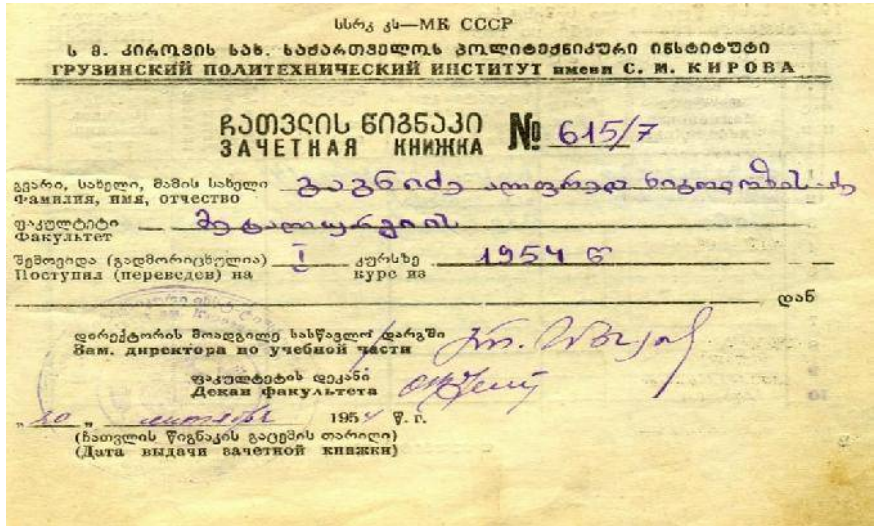 სსრკ კს—МК СССР
ს. მ. კიროვის სახ. საქართველოს პოლიტექნიკური ინსტიტუტი
ГРУЗИНСКИЙ ПОЛИТЕХНИЧЕСКИЙ ИНСТИТУТ имени С. М. КИРОВА
ჩათვლის წიგნაკი № 615/7
ЗАЧЕТНАЯ КНИЖКА
გვარი, სახელი, მამის სახელი გაგნიძე ალფრედ
Фамилия, имя, отчество
ფაკულტეტი მეტალურგიის
Факультет
შემოვიდა (გადმორიცხულია) I კურსზე 1954 წ
Поступил (переведен) на курс из
დან
დირექტორის მოადგილე სასწავლო დარგში
Зам. директора по учебной части
ფაკულტეტის დეკანი
Декан факультета
„20„ 1954 წ. г.
(ჩათვლის წიგნაკის გაცემის თარიღი)
(Дата выдачи зачетной книжки)